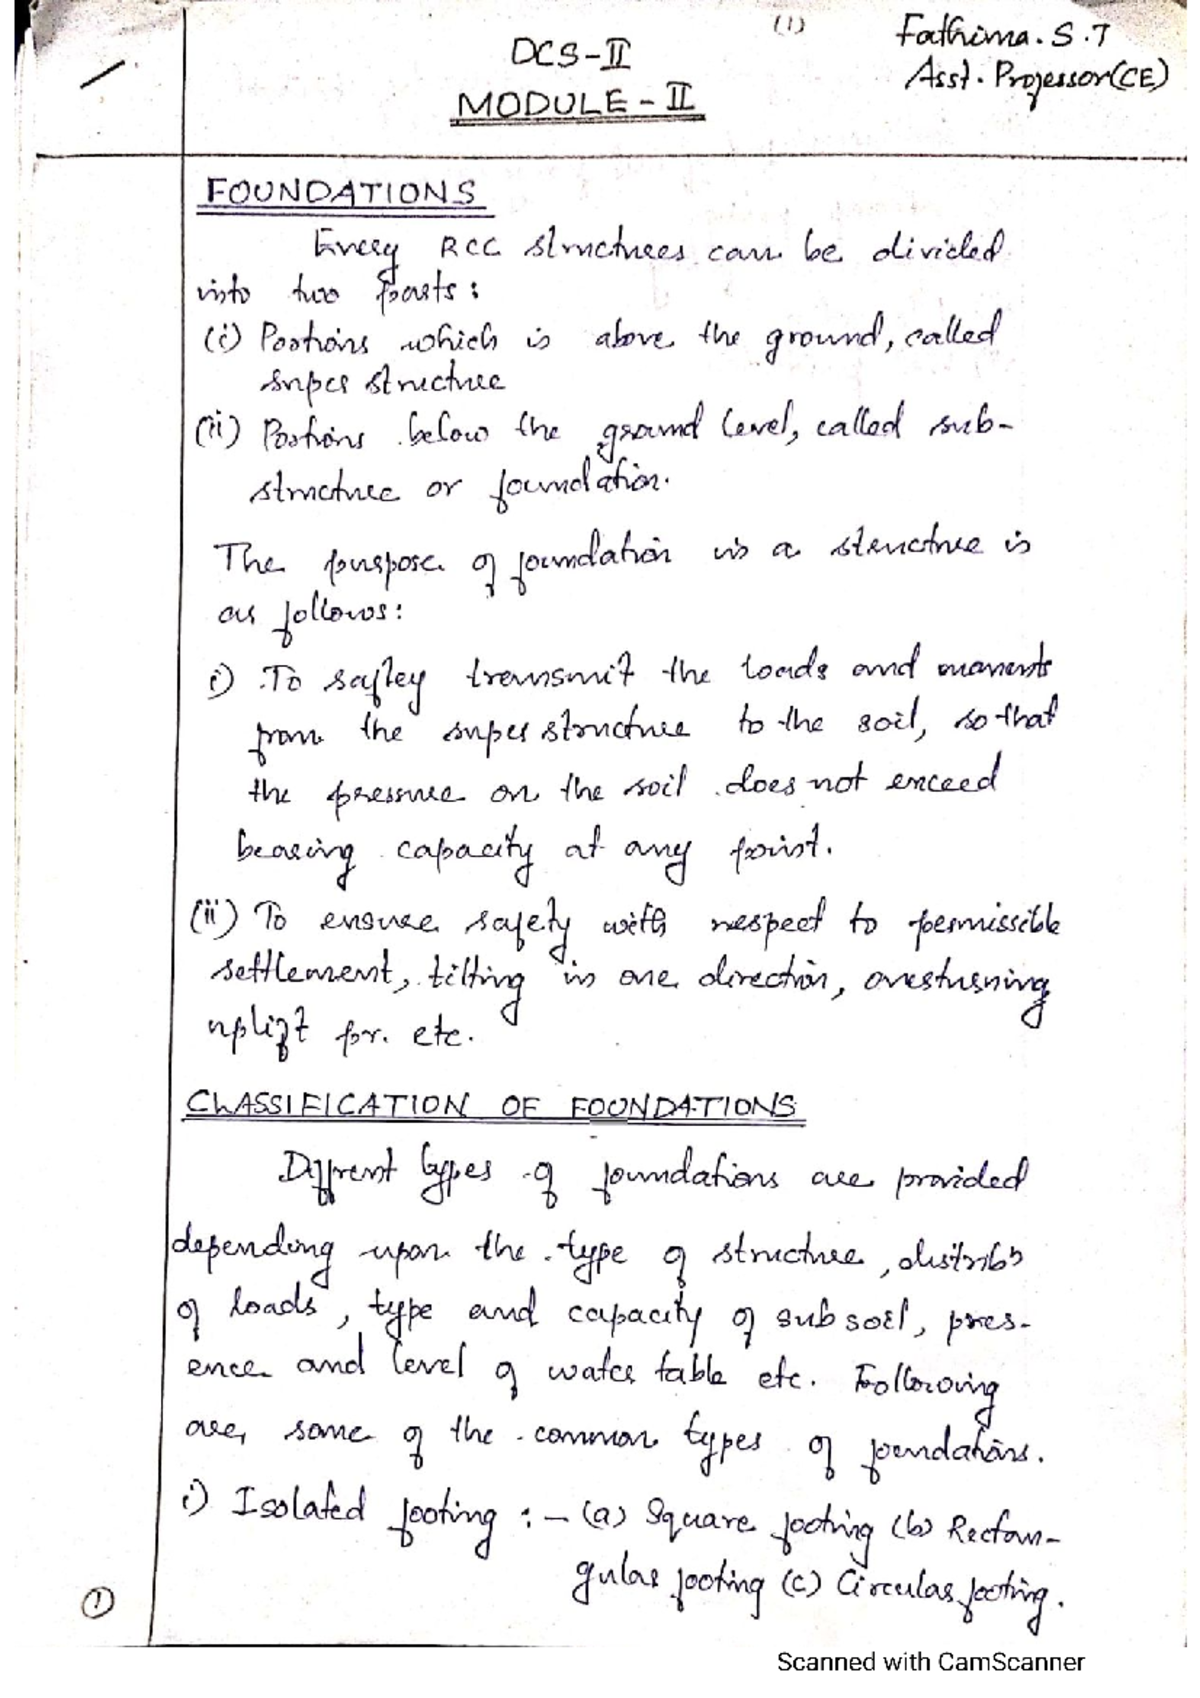 (1)
Fathima. S. T
Asst. Professor(CE)
DCS-II
MODULE - II
FOUNDATIONS
Every RCC structures can be divided
into two parts :
(i) Portions which is above the ground, called
super structure
(ii) Portions below the ground level, called sub-
structure or foundation.
The purpose of foundation in a structure is
as follows :
i) To safley transmit the loads and moments
from the super structure to the soil, so that
the pressure on the soil does not exceed
bearing capacity at any point.
(ii) To ensure safety with respect to permissible
settlement, tilting in one direction, overturning
uplift for. etc.
CLASSIFICATION OF FOUNDATIONS
Diffrent types of foundations are provided
depending upon the type of structure, distribn
of loads, type and capacity of sub soil, pres-
ence and level of water table etc. Following
are, some of the common types of foundations.
i) Isolated footing : - (a) Square footing (b) Rectan-
gular footing (c) Circular footing.
1
Scanned with CamScanner